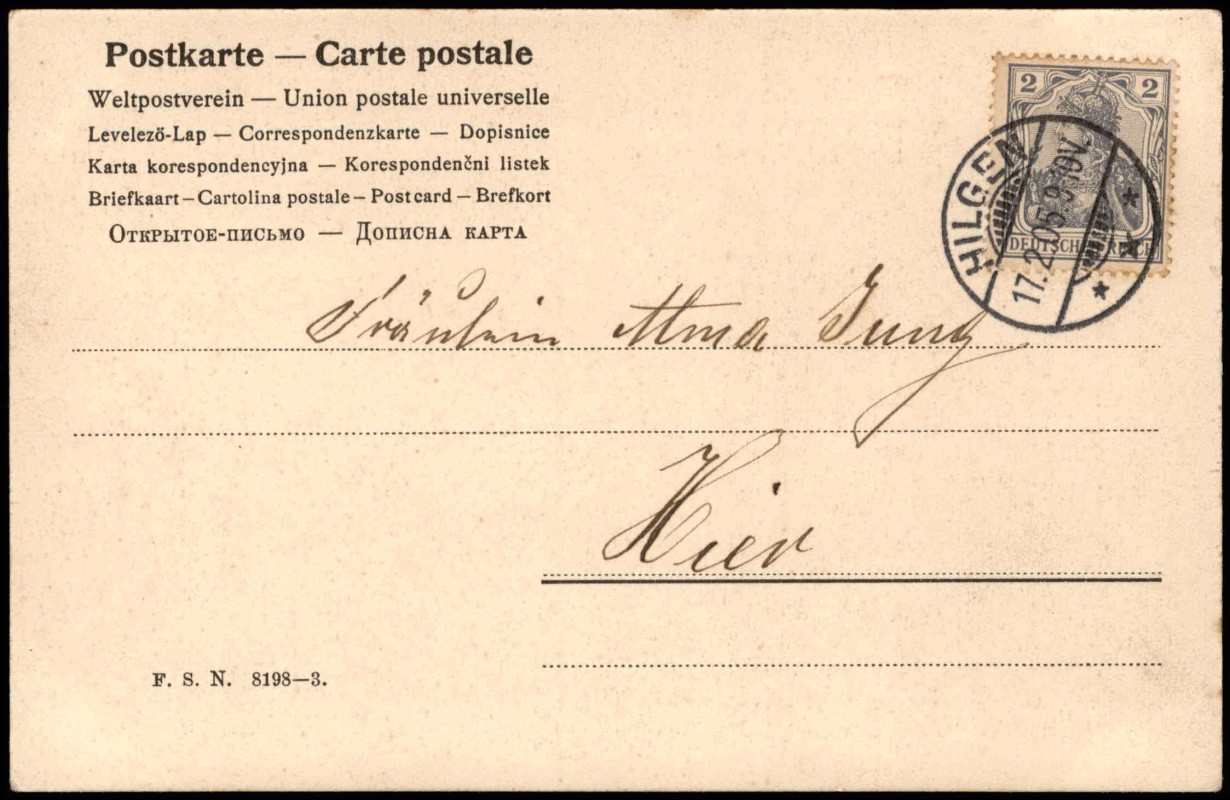 Postkarte — Carte postale
Weltpostverein — Union postale universelle
Levelező-Lap — Correspondenzkarte — Dopisnice
Karta korespondencyjna — Korespondenčni listek
Briefkaart – Cartolina postale – Post card – Brefkort
Открытое-письмо — Дописна карта
2 2
DEUTSCHES REICH
HILGEN
17.2.05.9-10V.
Fräulein Alma Jung
Hier
F. S. N. 8198—3.